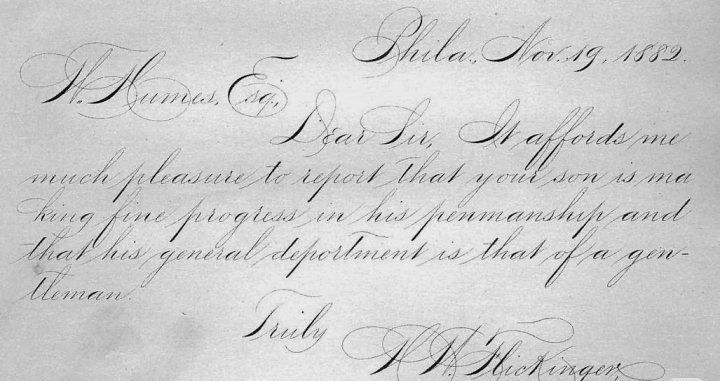 Phila., Nov. 19, 1882.
W. Humes, Esq.,
Dear Sir, It affords me
much pleasure to report that your son is ma
king fine progress in his penmanship and
that his general deportment is that of a gen-
tleman.
Truly
H. W. Flickinger,